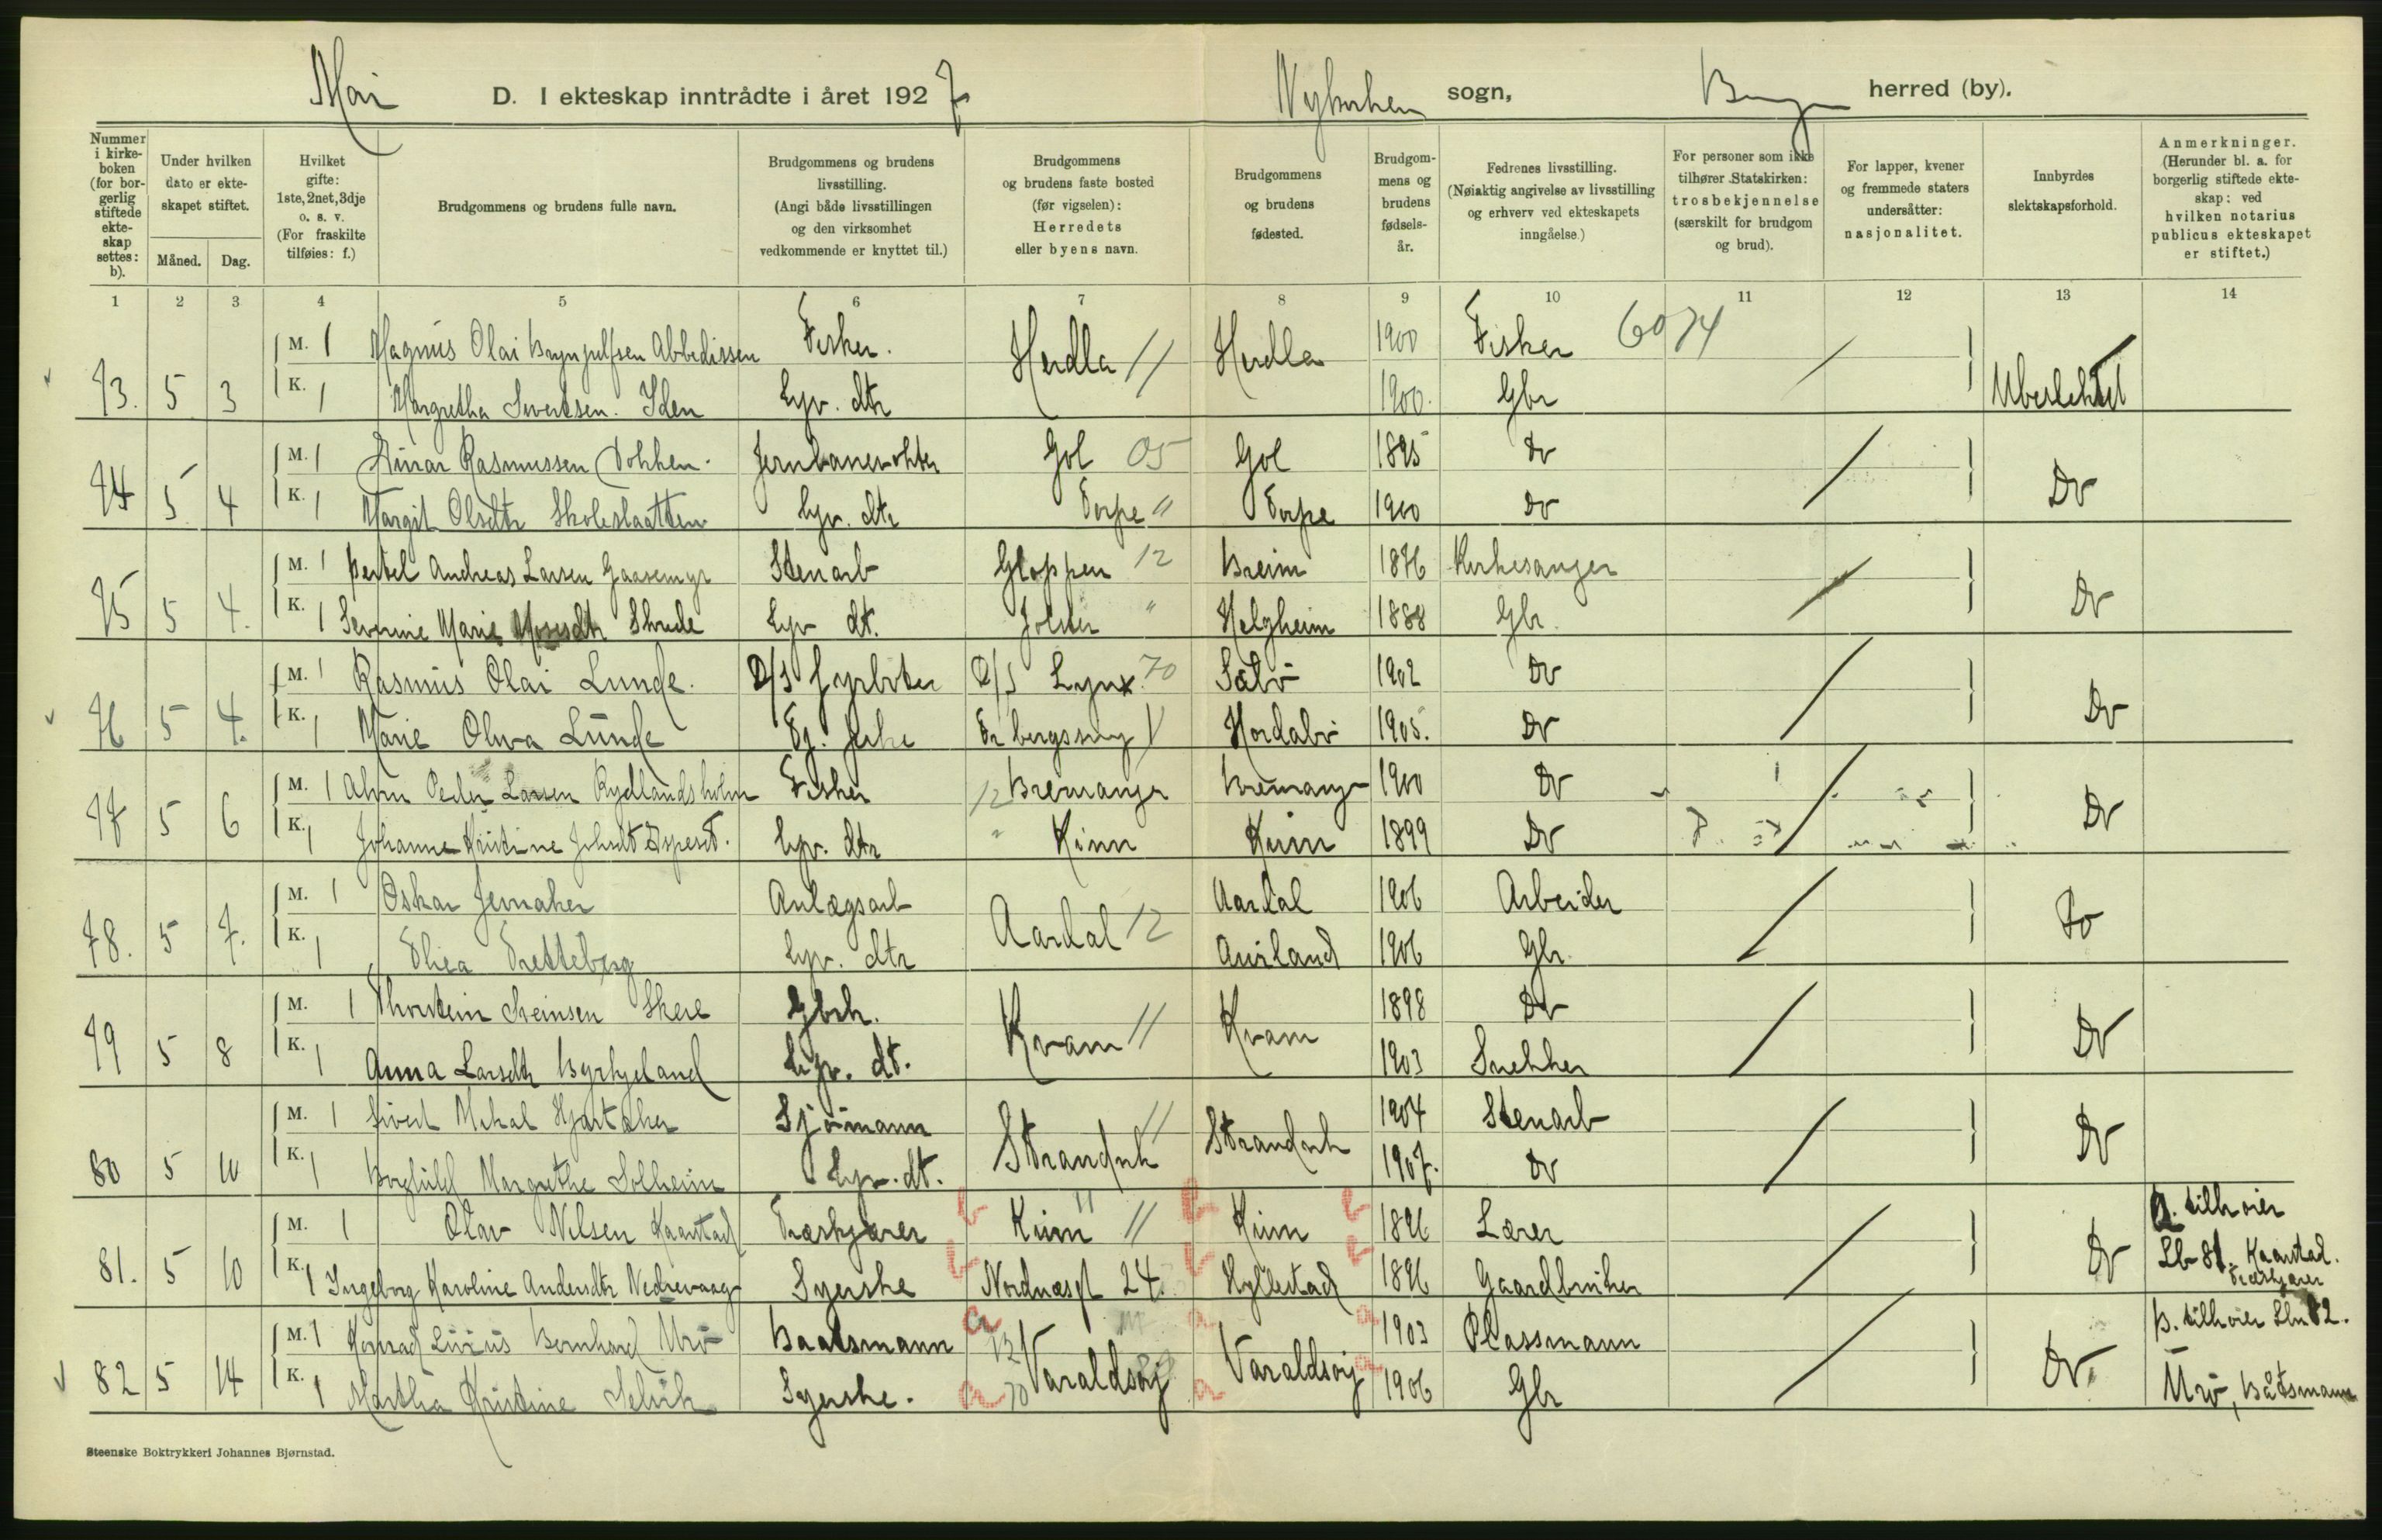 Mai D. I ekteskap inntrådte i året 1927 Nykirken sogn, Bergen herred (by).
Nummer i kirke-boken (for bor-gerlig stiftede ekte-skap settes: b).
Under hvilken dato er ekte-skapet stiftet.
Måned. Dag.
Hvilket gifte: 1ste, 2net, 3dje o. s. v. (For fraskilte tilføies: f.)
Brudgommens og brudens fulle navn.
Brudgommens og brudens livsstilling. (Angi både livsstillingen og den virksomhet vedkommende er knyttet til.)
Brudgommens og brudens faste bosted (før vigselen): Herredets eller byens navn.
Brudgommens og brudens fødested.
Brudgom-mens og brudens fødsels-år.
Fedrenes livsstilling. (Nøiaktig angivelse av livsstilling og erhverv ved ekteskapets inngåelse.)
For personer som ikke tilhører Statskirken: trosbekjennelse (særskilt for brudgom og brud).
For lapper, kvener og fremmede staters undersåtter: nasjonalitet.
Innbyrdes slektskapsforhold.
Anmerkninger. (Herunder bl. a. for borgerlig stiftede ekte-skap: ved hvilken notarius publicus ekteskapet er stiftet.)
1 2 3 4 5 6 7 8 9 10 11 12 13 14
M. 1 Magnus Olai Brynjulfsen Abbedissen Fisker. Herdla 11 Herdla 1900 Fisker 6074
73. 5 3 K. 1 Margretha Sivertsen Iden Hjv. dtr 1900. Gbr Ubeslektet
M. 1 Einar Rasmussen Dokken Jernbanevokter Gol 05 Gol 1895 Do
74 5 4 K. 1 Margit Olsdtr Skoleslaatten Hjv. dtr Torpe " Torpe 1900 Do Do
M. 1 Bertel Andreas Larsen Gaasemyr Stenarb Gloppen 12 Breim 1876 Kirkesanger
75 5 4. K. 1 Severine Marie Mosesdtr Skrede Hjv dt. Jolster " Helgheim 1888 Gbr. Do
M. 1 Rasmus Olai Lunde. D/S fyrbøter D/S Lynx 70 Sætø 1902 Do
76 5 4. K. 1 Marie Oliva Lunde Hordabø 1905. Do Do
M. 1 Peder Larsen Rydlandsholm Fisker 12 Bremanger Bremanger 1900 Do
77 5 6 K. 1 Johanne Kristine Johsdt Hjv. dtr " Kinn Kinn 1899 Do Do
M. 1 Oskar Jernaker Anlægsarb Aardal 12 Aardal 1906 Arbeider
78. 5 7. K. 1 Thea Trettebøg Hjv. dtr Aurland 1906 Gbr. Do
M. 1 Thorstein Steinsen Skeie Gbrk. Kvam 11 Kvam 1898 Do
79 5 8 K. 1 Anna Larsdtr Byrkjeland Hjv. dt. 1903 Snekker Do
M. 1 Sivert Mikal Hjartaker Sjømann Strandvik 11 Strandvik 1904 Stenarb
80 5 10 K. 1 Borghild Margrethe Solheim Hjv. dt. 1907. Do Do
M. 1 Olav Nilsen Kaarstad Træskjærer Kinn 11 Kinn 1896 Lærer
81. 5 10 K. 1 Ingeborg Karoline Andersdtr Nedrevaag Syerske Nordnæsgt 24. Hyllestad 1896 Gaardbruker Do
A. tilhører Lb 81. Kaarstad. Træskjærer
M. 1 Konrad Bernhard Urø Baatsmann 12 Varaldsøy Varaldsøy 1903 Plassmann
82 5 14 K. 1 Martha Kristine Selvik Syerske. 70 1906 Gbr Do.
B. tilhører Lbn 82. Urø, Båtsmann
Steenske Boktrykkeri Johannes Bjørnstad.